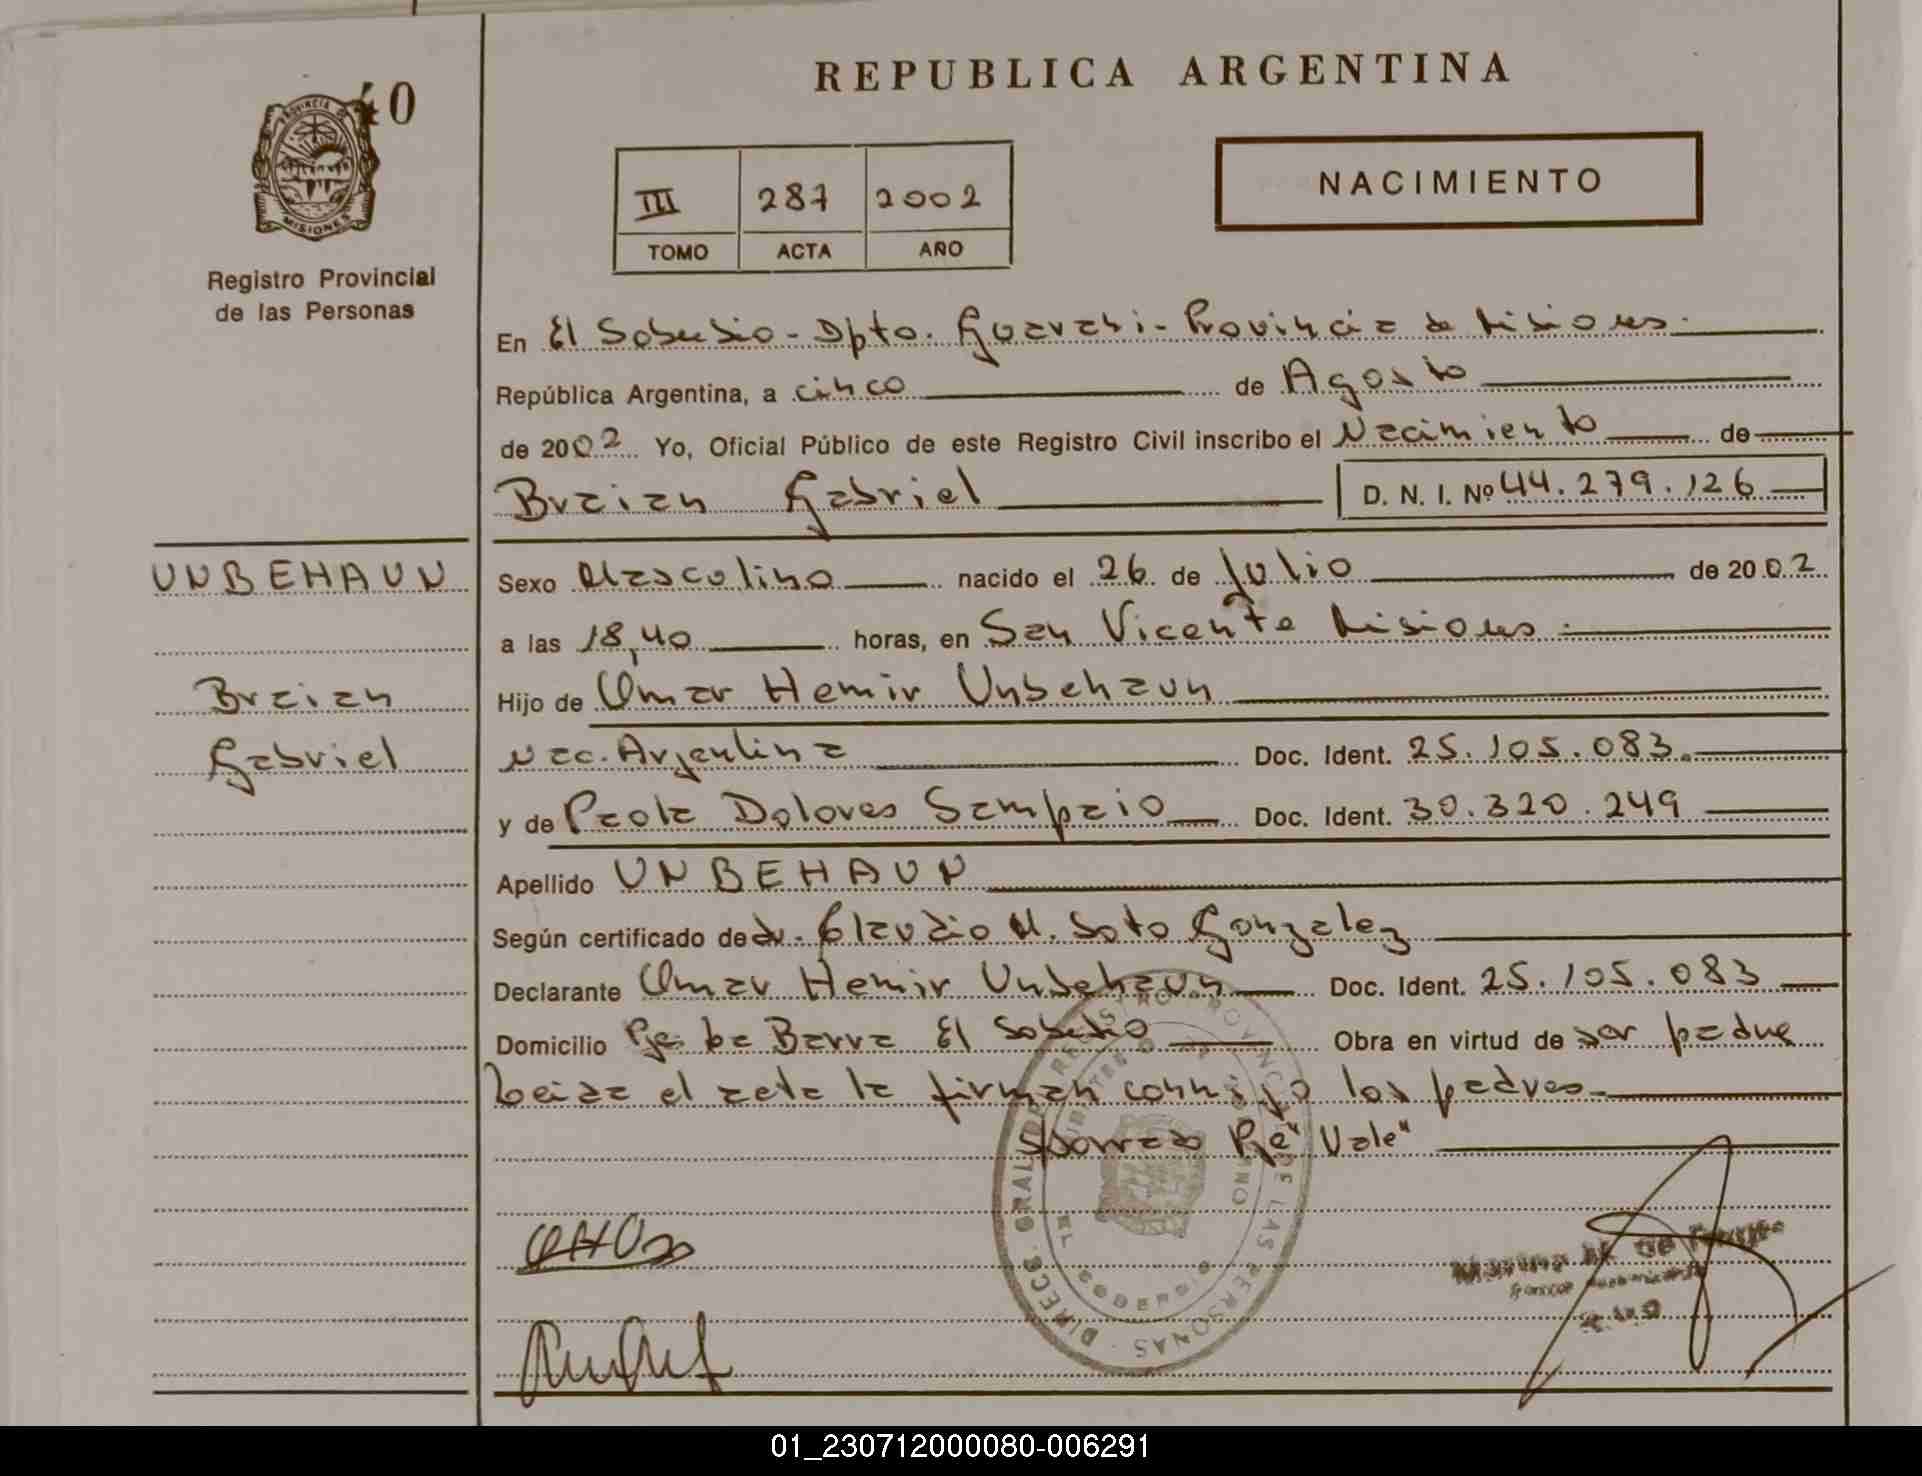 REPUBLICA ARGENTINA
40
PROVINCIA DE
MISIONES
Registro Provincial
de las Personas
III 287 2002
TOMO ACTA AÑO
NACIMIENTO
En El Soberbio - Dpto. Guarani - Provincia de Misiones.
República Argentina, a cinco de Agosto
de 2002 Yo, Oficial Público de este Registro Civil inscribo el Nacimiento de
Braian Gabriel D. N. I. Nº 44.279.126
UNBEHAUN
Braian
Gabriel
Sexo Masculino nacido el 26 de Julio de 2002
a las 18,40 horas, en San Vicente Misiones.
Hijo de Omar Hemir Unbehaun
Nac. Argentina Doc. Ident. 25.105.083.
y de Paola Dolores Sampaio Doc. Ident. 30.320.249
Apellido UNBEHAUN
Según certificado de dr. Claudio M. Soto Gonzalez
Declarante Omar Hemir Unbehaun Doc. Ident. 25.105.083
Domicilio Pje. La Barra El Soberbio Obra en virtud de ser padre
Leida el acta la firman conmigo los padres.
Borrado "Vale"
DIRECC. GRAL. DE REGISTRO PROVINCIAL DE LAS PERSONAS
EL SOBERBIO
01_230712000080-006291